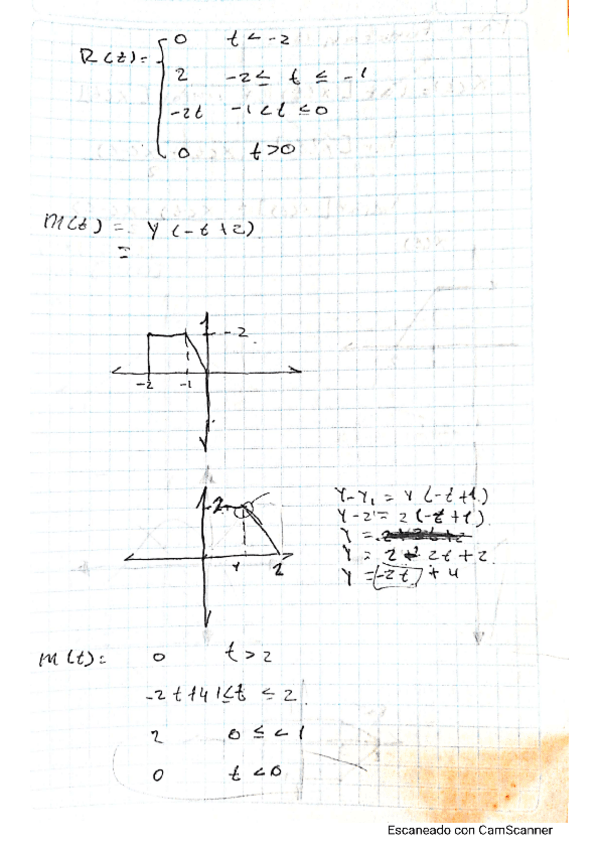 R(t) = { 0 t < -2
2 -2 ≤ t ≤ -1
-2t -1 < t ≤ 0
0 t > 0
m(t) = Y(-t+2)
=
-2
-2 -1
2
1 2
Y-Y₁ = Y(-t+1)
Y-2 = 2(-t+1)
Y =
Y = 2 - 2t + 2
Y = -2t + 4
m(t) = 0 t > 2
-2t+4 1 ≤ t ≤ 2
2 0 ≤ < 1
0 t < 0
Escaneado con CamScanner